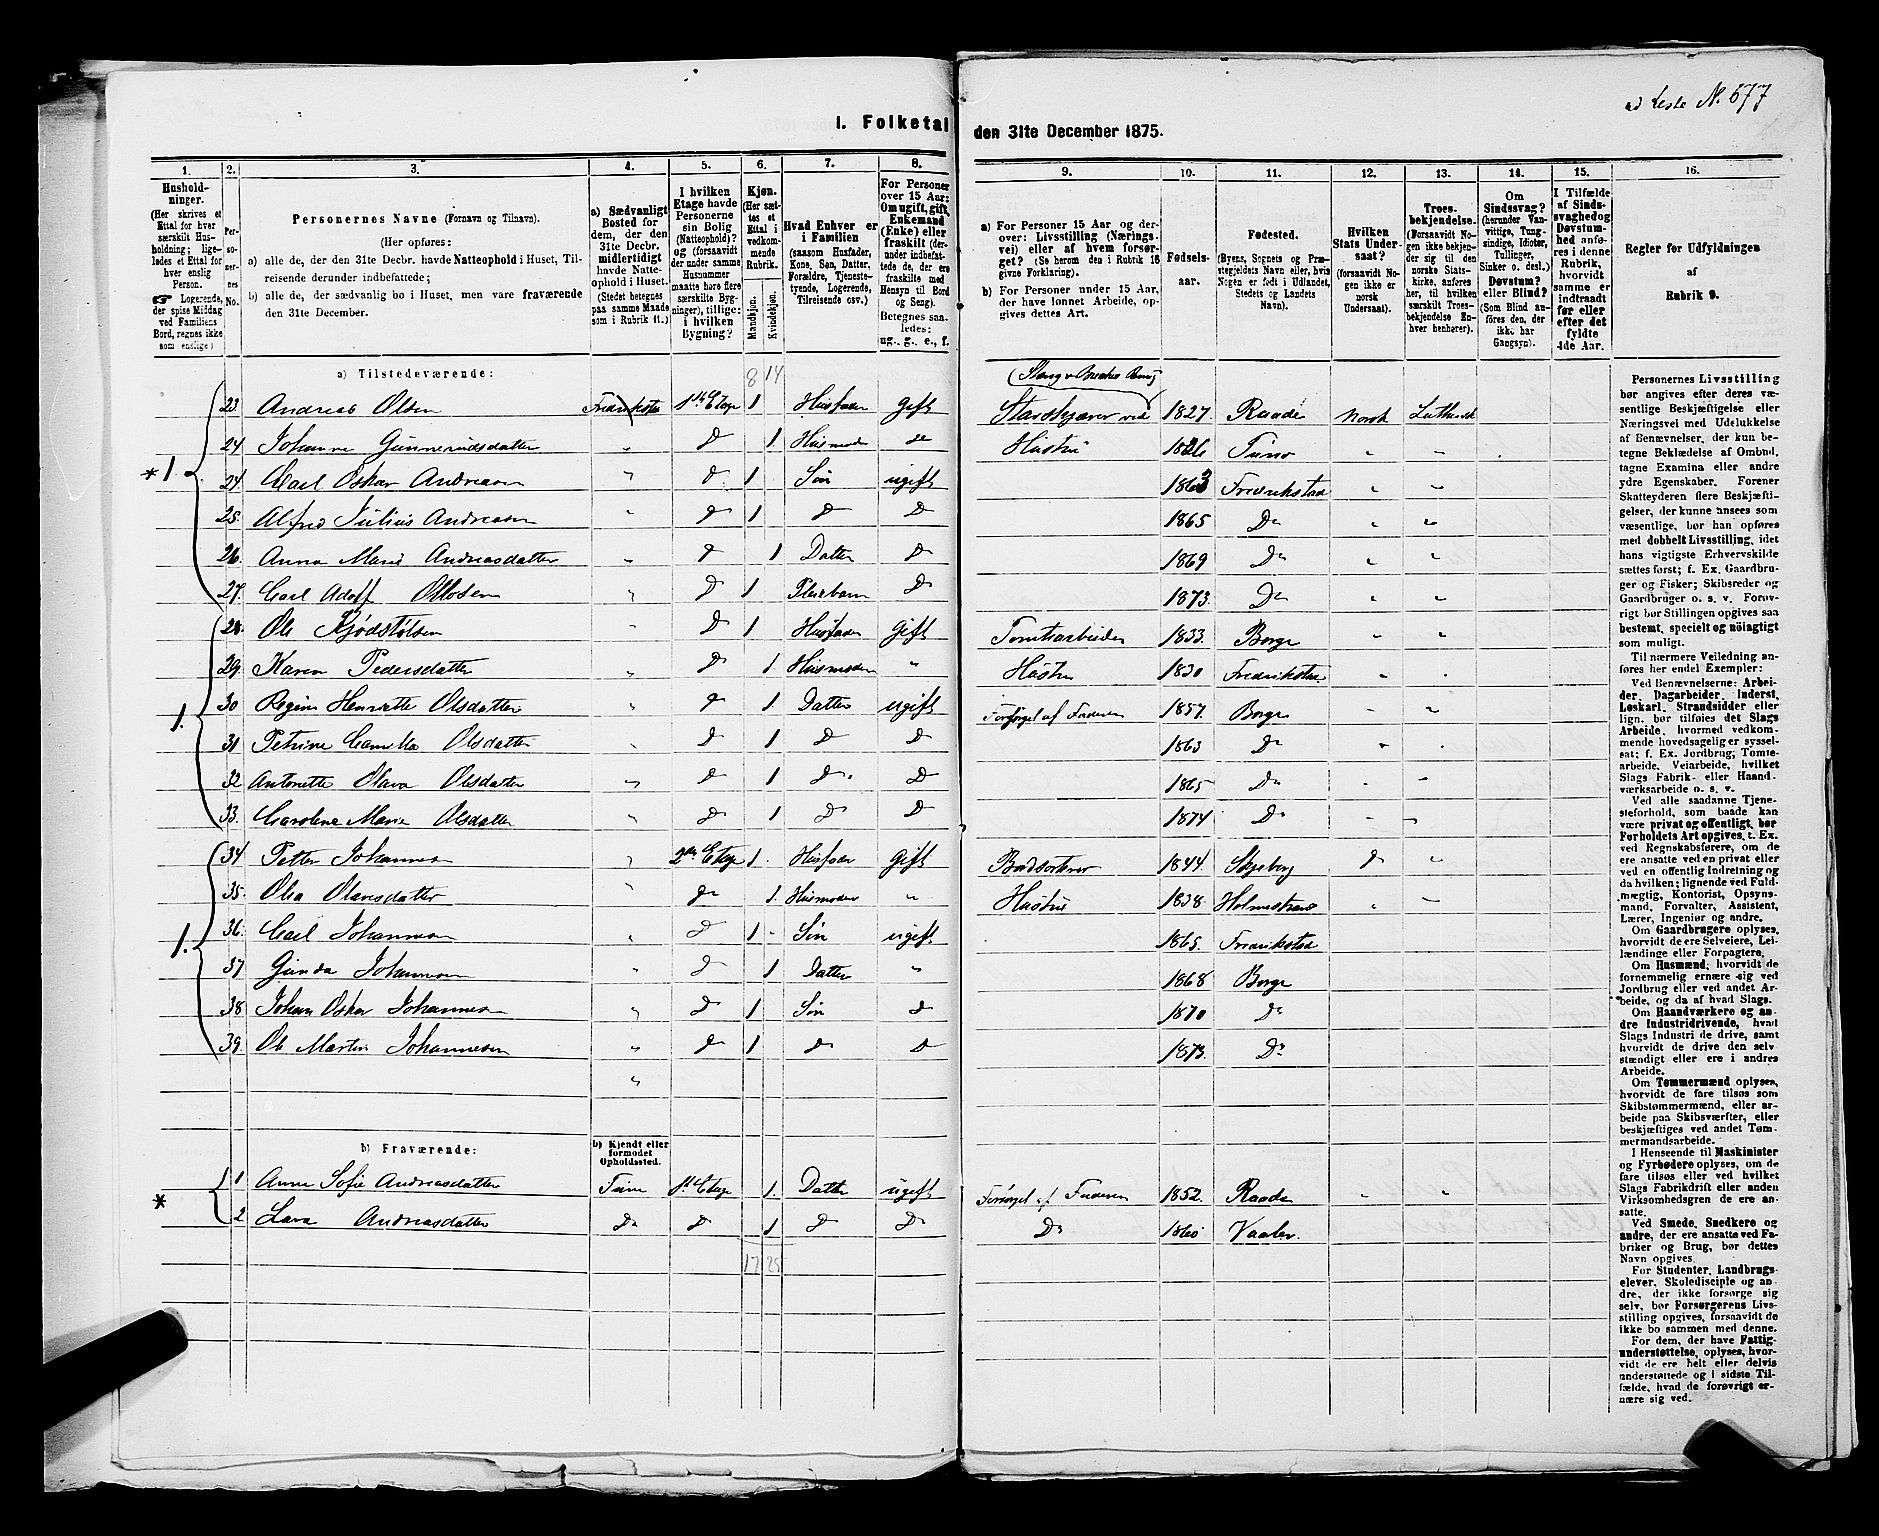 ad Liste N. 577
I. Folketal den 31te December 1875.
1. 2. 3. 4. 5. 6. 7. 8. 9. 10. 11. 12. 13. 14. 15. 16.
Husholdninger.
(Her skrives et Ettal for hver særskilt Husholdning; ligeledes et Ettal for hver enslig Person.
☛ Logerende, der spise Middag ved Familiens Bord, regnes ikke som enslige)
Personernes No.
Personernes Navne (Fornavn og Tilnavn).
(Her opføres:
a) alle de, der den 31te Decbr. havde Natteophold i Huset, Tilreisende derunder indbefattede;
b) alle de, der sædvanlig bo i Huset, men vare fraværende den 31te December.
a) Sædvanligt Bosted for dem, der den 31te Decbr. midlertidigt havde Natteophold i Huset.
(Stedet betegnes paa samme Maade som i Rubrik 11.)
I hvilken Etage havde Personerne sin Bolig (Natteophold)? (forsaavidt der under samme Husnummer maatte høre flere særskilte Bygninger), tillige: i hvilken Bygning?
Kjøn. (Her sættes et Ettal i vedkommende Rubrik. Mandkjøn. Kvindekjøn.
Hvad Enhver er i Familien
(saasom Husfader, Kone, Søn, Datter, Forældre, Tjenestetyende, Logerende, Tilreisende osv.)
For Personer over 15 Aar: Om ugift, gift, Enkemand (Enke) eller fraskilt (derunder indbefattede de, der ere fraskilte med Hensyn til Bord og Seng).
Betegnes saaledes: ug., g., e., f.
a) For Personer 15 Aar og derover: Livsstilling (Næringsvei) eller af hvem forsørget? (Se herom den i Rubrik 16 givne Forklaring).
b) For Personer under 15 Aar, der have lønnet Arbeide, opgives dettes Art.
Fødselsaar.
Fødested.
(Byens, Sognets og Præstegjeldets Navn eller, hvis Nogen er født i Udlandet, Stedets og Landets Navn).
Hvilken Stats Undersaat?
(forsaavidt Nogen ikke er norsk Undersaat).
Troesbekjendelse.
(Forsaavidt Nogen ikke bekjender sig til den norske Statskirke, anføres her, til hvilken særskilt Troesbekjendelse Enhver henhører).
Om Sindssvag? (herunder Vanvittige, Tungsindige, Idioter, Tullinger, Sinker o. desl.) Døvstum? eller Blind? (Som Blind anføres den, der ikke har Gangsyn).
I Tilfælde af Sindssvaghed og Døvstumhed anføres i denne Rubrik, hvorvidt samme er indtraadt før eller efter det fyldte 4de Aar.
Regler for Udfyldningen af Rubrik 9.
a) Tilstedeværende: 8 14
23. Andreas Olsen Fredrikstad 1ste Etage 1 Husfader Gift 1827 Raade Norsk Luthersk
24 Johanne Gunnerudsdatter " D 1 Husmoder Do Hustru 1826 Tune " "
24. Carl Oskar Andreasen " D 1 Søn ugift 1863 Fredrikstad " "
25. Alfred Julius Andreasen " D 1 D D 1865 Do " "
26. Anna Marie Andreasdatter " D 1 Datter D 1869 Do " "
27. Carl Adolf Ottosen " D 1 Pleiebarn D 1873. Do " "
28. Ole Kjødstølsen " D 1 Husfader Gift Tomtearbeider 1833. Borge " "
29. Karen Pedersdatter " D 1. Husmoder " Hustru 1830 Fredrikstad " "
30 Regine Henriette Olsdatter " D 1. Datter ugift Forsørget af Faderen 1857. Borge " "
31 Petrine Camilla Olsdatter " D 1 D D 1863 Do " "
32 Antonette Olava Olsdatter " D 1 D D 1865 Do " "
33. Carolene Marie Olsdatter " D 1 D D 1874 Do " "
34 Petter Johannesen " 2den Etage 1. Husfader Gift 1844. Skjeberg D "
35. Olea Olavesdatter " Do 1. Husmoder " Hustru 1838. Holmestrand " "
36. Carl Johannesen " D 1 Søn ugift 1865. Fredrikstad
37 Gunda Johannesen " D 1 Datter " 1868 Borge
38 Johan Oskar Johannesen " D 1 Søn D 1870 Do
39. Ole Martin Johannesen " D 1 D D 1873. Do
"
b) Fraværende: b) Kjendt eller formodet Opholdssted.
1 Anne Sofie Andreasdatter Tune 1ste Etage 1. Datter ugift Forsørget af Faderen 1852. Raade " "
2 Lava Andreasdatter Do D 1 D D Do 1860 Vaaler.
17 25
Personernes Livsstilling bør angives efter deres væsentlige Beskjæftigelse eller Næringsvei med Udelukkelse af Benævnelser, der kun betegne Beklædelse af Ombud, tagne Examina eller andre ydre Egenskaber. Forener Skatteyderen flere Beskjæftigelser, der kunne ansees som væsentlige, bør han opføres med dobbelt Livsstilling, idet hans vigtigste Erhvervskilde sættes først; f. Ex. Gaardbruger og Fisker; Skibsreder og Gaardbruger o. s. v. Forøvrigt bør Stillingen opgives saa bestemt, specielt og nöiagtigt som muligt.
Til nærmere Veiledning anføres her endel Exempler:
Ved Benævnelserne: Arbeider, Dagarbeider, Inderst, Løskarl, Strandsidder eller lign. bør tilføies det Slags Arbeide, hvormed vedkommende hovedsagelig er sysselsat; f. Ex. Jordbrug, Tomtearbeide, Veiarbeide, hvilket Slags Fabrik- eller Haandværksarbeide o. s. v.
Ved alle saadanne Tjenesteforhold, som baade kan være privat og offentligt, bør Forholdets Art opgives, t. Ex. ved Regnskabsførere, om de ere ansatte ved en privat eller ved en offentlig Indretning og da hvilken; lignende ved Fuldmægtig, Kontorist, Opsynsmand, Forvalter, Assistent, Lærer, Ingeniør og andre.
Om Gaardbrugere oplyses, hvorvidt de ere Selveiere, Leilændinge eller Forpagtere.
Om Husmænd, hvorvidt de fornemmelig ernære sig ved Jordbrug eller ved andet Arbeide, og da af hvad Slags.
Om Haandværkere og andre Industridrivende, hvad Slags Industri de drive, samt hvorvidt de drive den selvstændigt eller ere i andres Arbeide.
Om Tømmermænd oplyses, hvorvidt de fare tilsøs som Skibstømmermænd, eller arbeide paa Skibsværfter, eller beskjæftiges ved andet Tømmermandsarbeide.
I Henseende til Maskinister og Fyrbødere oplyses, om de fare tilsøs eller ved hvilket Slags Fabrikdrift eller anden Virksomhedsgren de ere ansatte.
Ved Smede, Snedkere og andre, der ere ansatte ved Fabriker og Brug, bør dettes Navn opgives.
For Studenter, Landbrugselever, Skoledisciple og andre, der ikke forsørge sig selv, bør Forsørgerens Livsstilling opgives, forsaavidt de ikke bo sammen med denne.
For dem, der have Fattigunderstøttelse, oplyses, hvorvidt de ere helt eller delvis understøttede og i sidste Tilfælde, hvad de forøvrigt ernære sig ved.